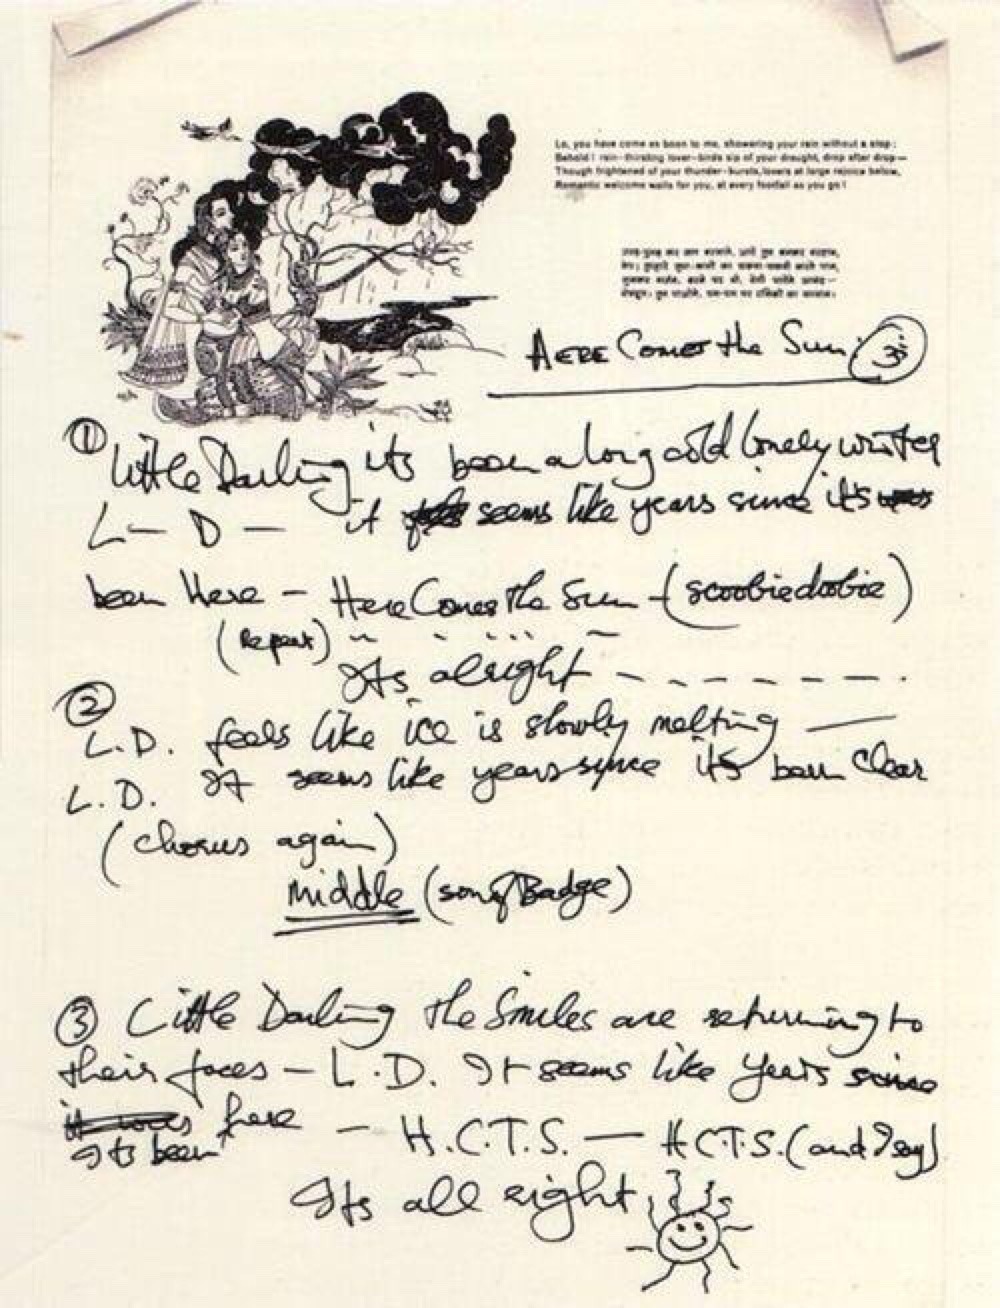 Lo, you have come as boon to me, showering your rain without a stop;
Behold! rain-thirsting lover-birds sip of your draught, drop after drop—
Though frightened of your thunder-bursts, lovers at large rejoice below,
Romantic welcome waits for you, at every footfall as you go!
HERE Comes the Sun.
①
Little Darling its been a long cold lonely winter
L— D — it seems like years since it's
been Here — Here Comes The Sun — (scoobiedoobie)
(Repeat)
Its alright — — — — — — — .
②
L.D. feels like ice is slowly melting —
L.D. It seems like years since its been clear
(chorus again)
middle (song Badge)
③ Little Darling the Smiles are returning to
their faces — L.D. It seems like years since
here — H.C.T.S. — H.C.T.S. (and I say)
Its been
Its all right